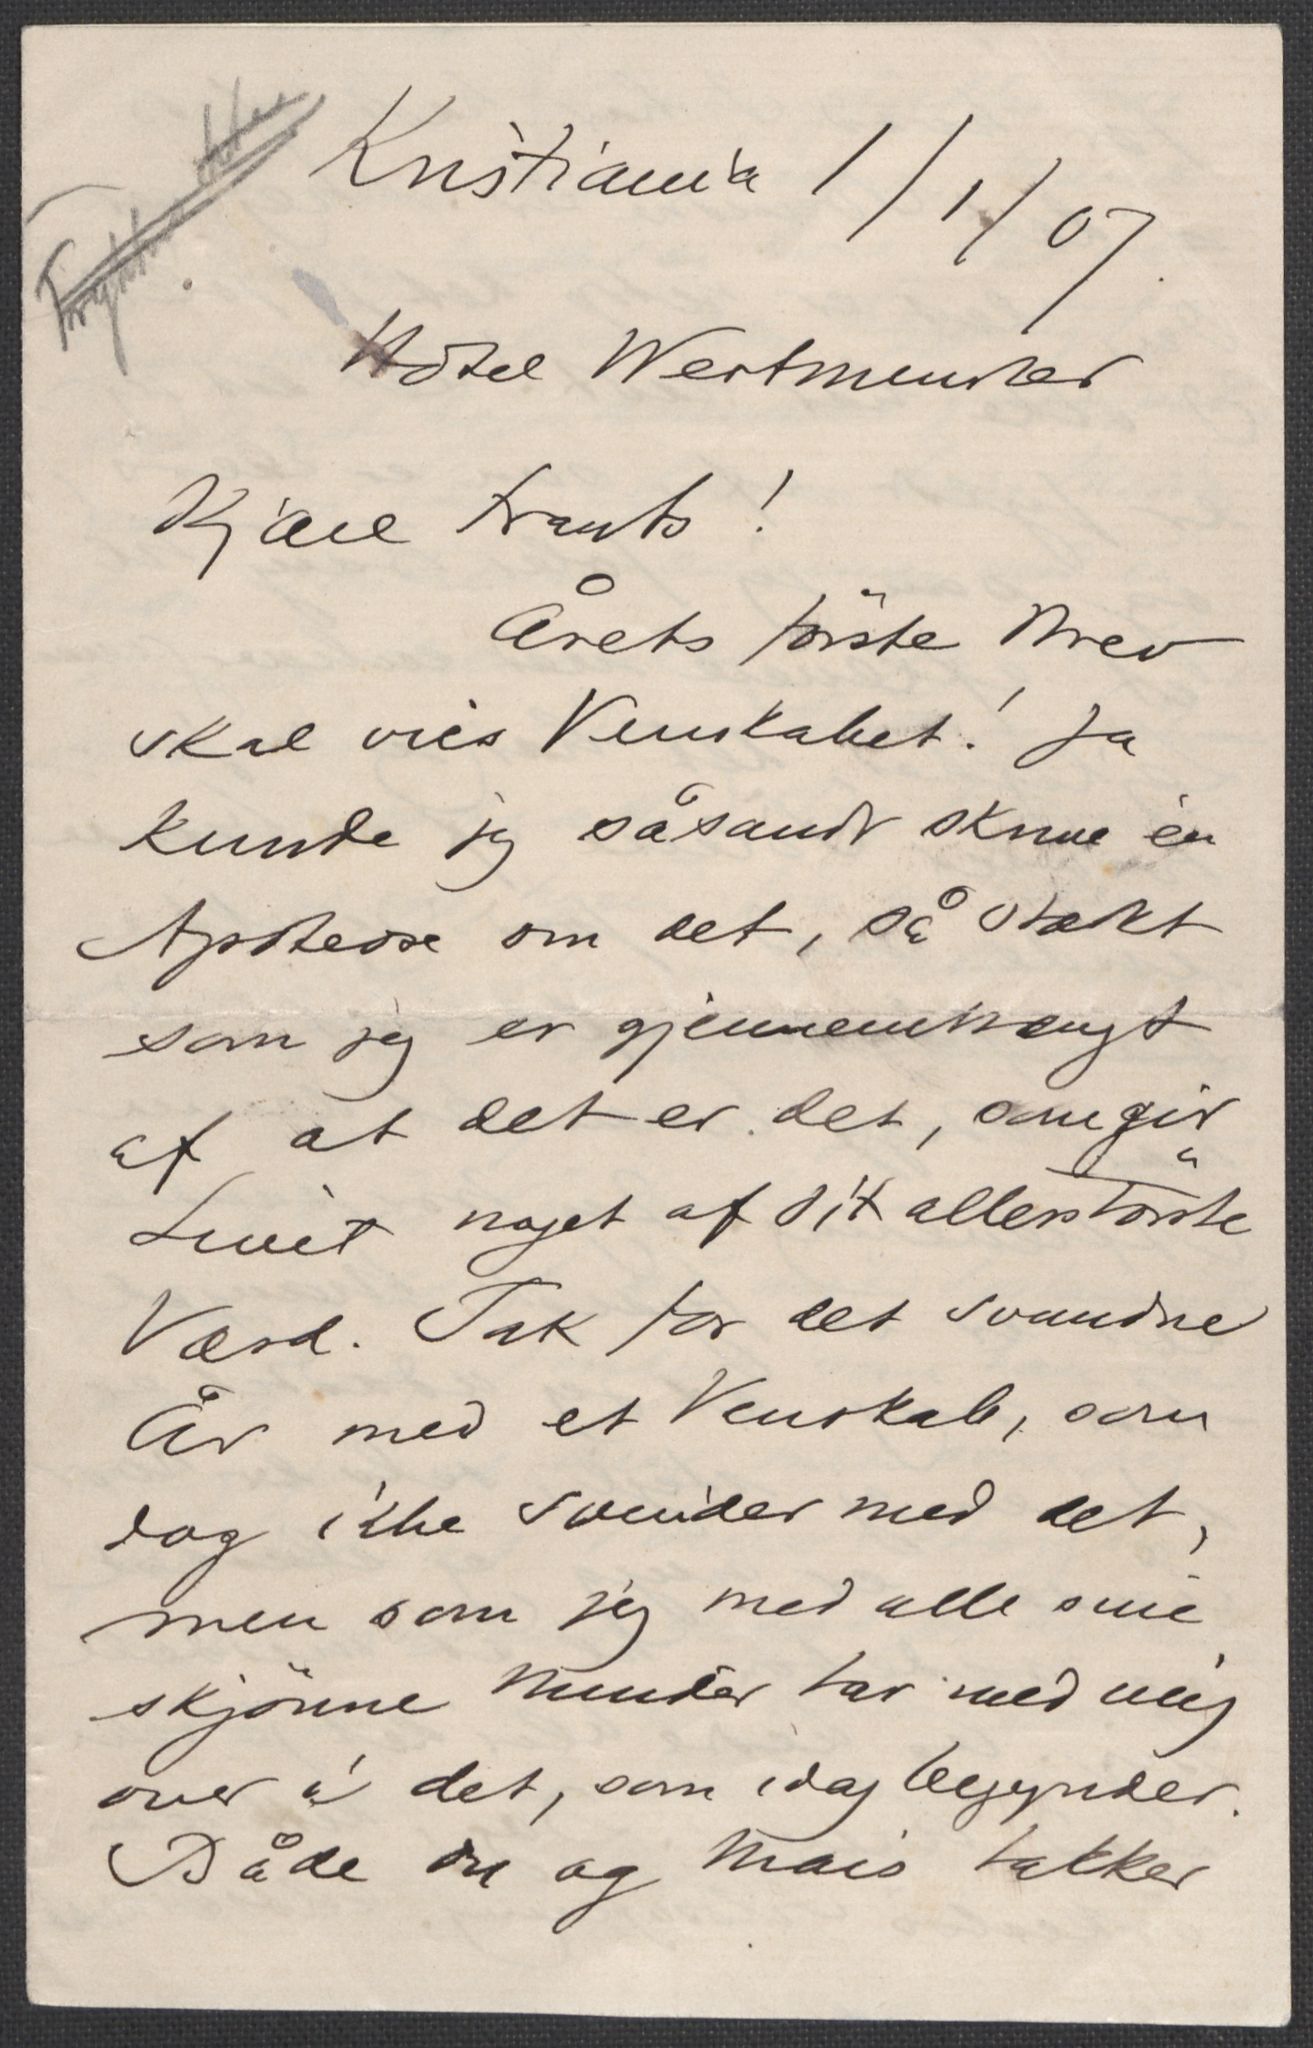 Kristiania 1/1/07.
Hôtel Westminster
Kjære Frants!
Årets första Brev
skal vies Venskabet! Ja
kunde jeg såsandt skrive én
Apoteose om det, så stærkt
som jeg er gjennemtrængt
af at det er det, som gir
Livet noget af sit allerstörste
Værd. Tak for det svundne
År med et Venskab, som
dog ikke svinder med det,
men som jeg med alle sine
skjönne Minder tar med mig
over i det, som idag begynder.
Både du og Mais takker